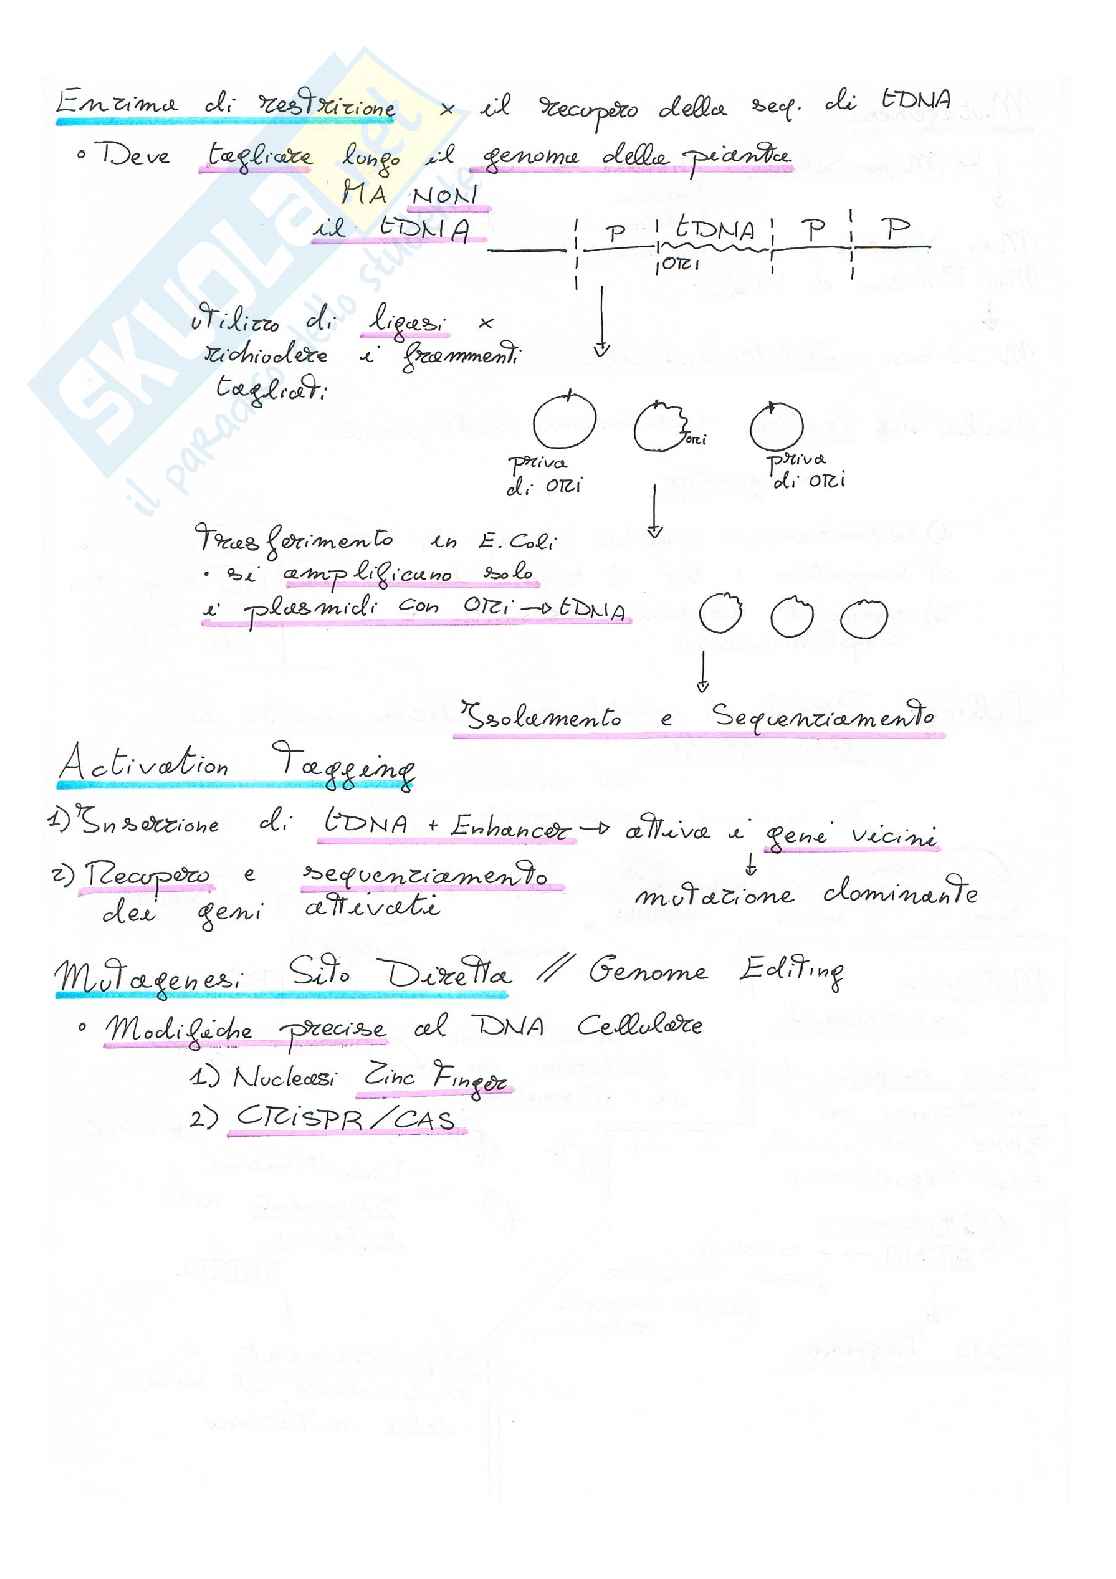 Enzima di restrizione x il recupero della seq. di tDNA
° Deve tagliare lungo il genoma della pianta
MA NON
il tDNA
P tDNA P P
ORi
utilizzo di ligasi x
richiudere i frammenti
tagliati
ORi
priva di ORi
priva di ORi
Trasferimento in E. Coli
• si amplificano solo
i plasmidi con ORi → tDNA
Isolamento e Sequenziamento
Activation Tagging
1) Inserzione di tDNA + Enhancer → attiva i geni vicini
2) Recupero e sequenziamento
dei geni attivati
mutazione dominante
Mutagenesi Sito Diretta // Genome Editing
° Modifiche precise al DNA Cellulare
1) Nucleasi Zinc Finger
2) CRiSPR/CAS
SKUOLA.net
il paradiso dello studente